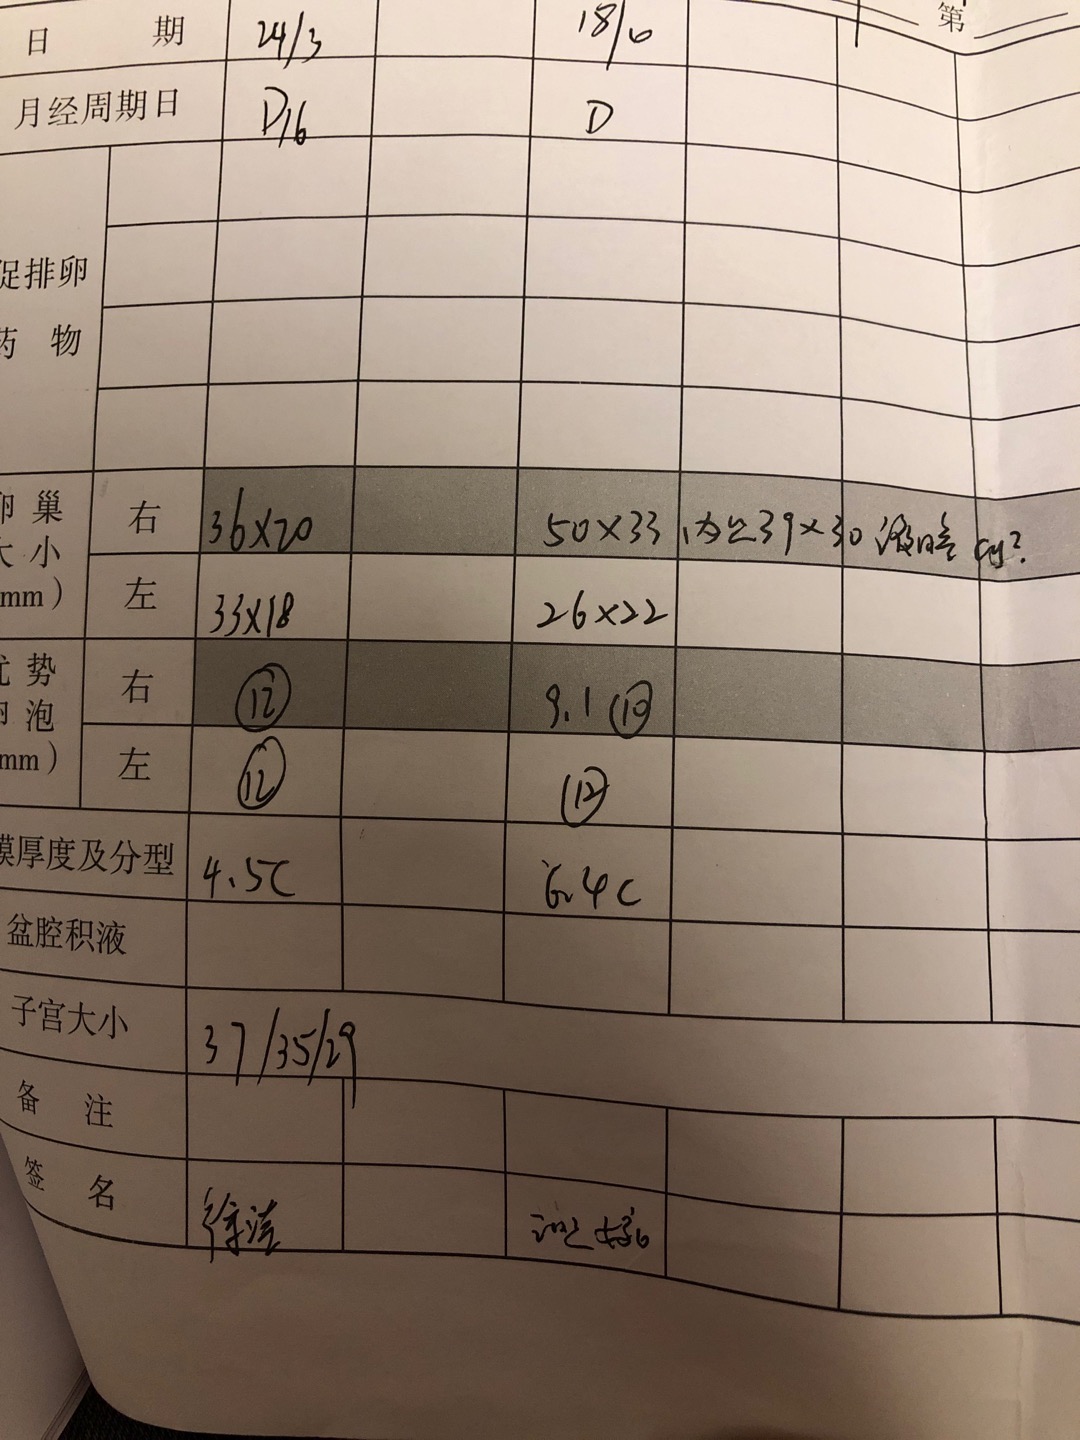 第
日 期 24/3 18/6
月经周期日 D16 D
促排卵
药 物
卵巢 右 36×20 50×33 内见39×30 液暗 cy?
大小
mm) 左 33×18 26×22
优势 右 ⑫ 9.1 ⑫
卵泡
mm) 左 ⑫ ⑫
膜厚度及分型 4.5C 6.4C
盆腔积液
子宫大小 37/35/29
备 注
签 名